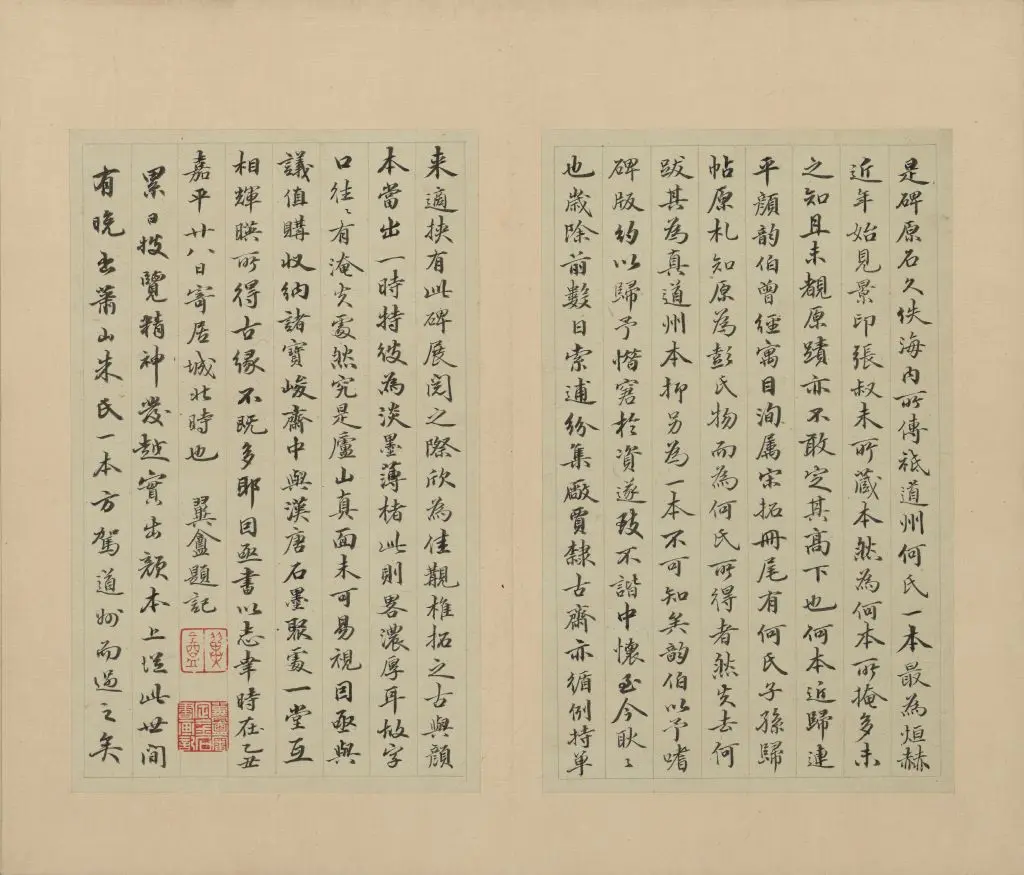 是碑原石久佚海内所傳祇道州何氏一本最為烜赫
近年始見景印張叔未所藏本然為何本所掩多未
之知且未覩原蹟亦不敢定其高下也何本近歸連
平顏韵伯曾經寓目洵屬宋拓冊尾有何氏子孫歸
帖原札知原為彭氏物而為何氏所得者然失去何
跋其為真道州本抑另為一本不可知矣韵伯以予嗜
碑版約以歸予惜窘於資遂致不諧中懷至今耿〻
也歲除前數日索逋紛集廠賈隸古齋亦循例持單
来適挾有此碑展閱之際欣為佳覯椎拓之古與顏
本當出一時特彼為淡墨薄楮此則畧濃厚耳故字
口往〻有淹失處然究是廬山真面未可易視因亟與
議值購收納諸寶峻齋中與漢唐石墨聚處一堂互
相輝暎所得古緣不既多耶因亟書以志幸時在乙丑
嘉平廿八日寄居城北時也 翼盦題記
累日披覽精神發越實出顏本上從此世間
有晚出蕭山朱氏一本方駕道州而過之矣
翼盦